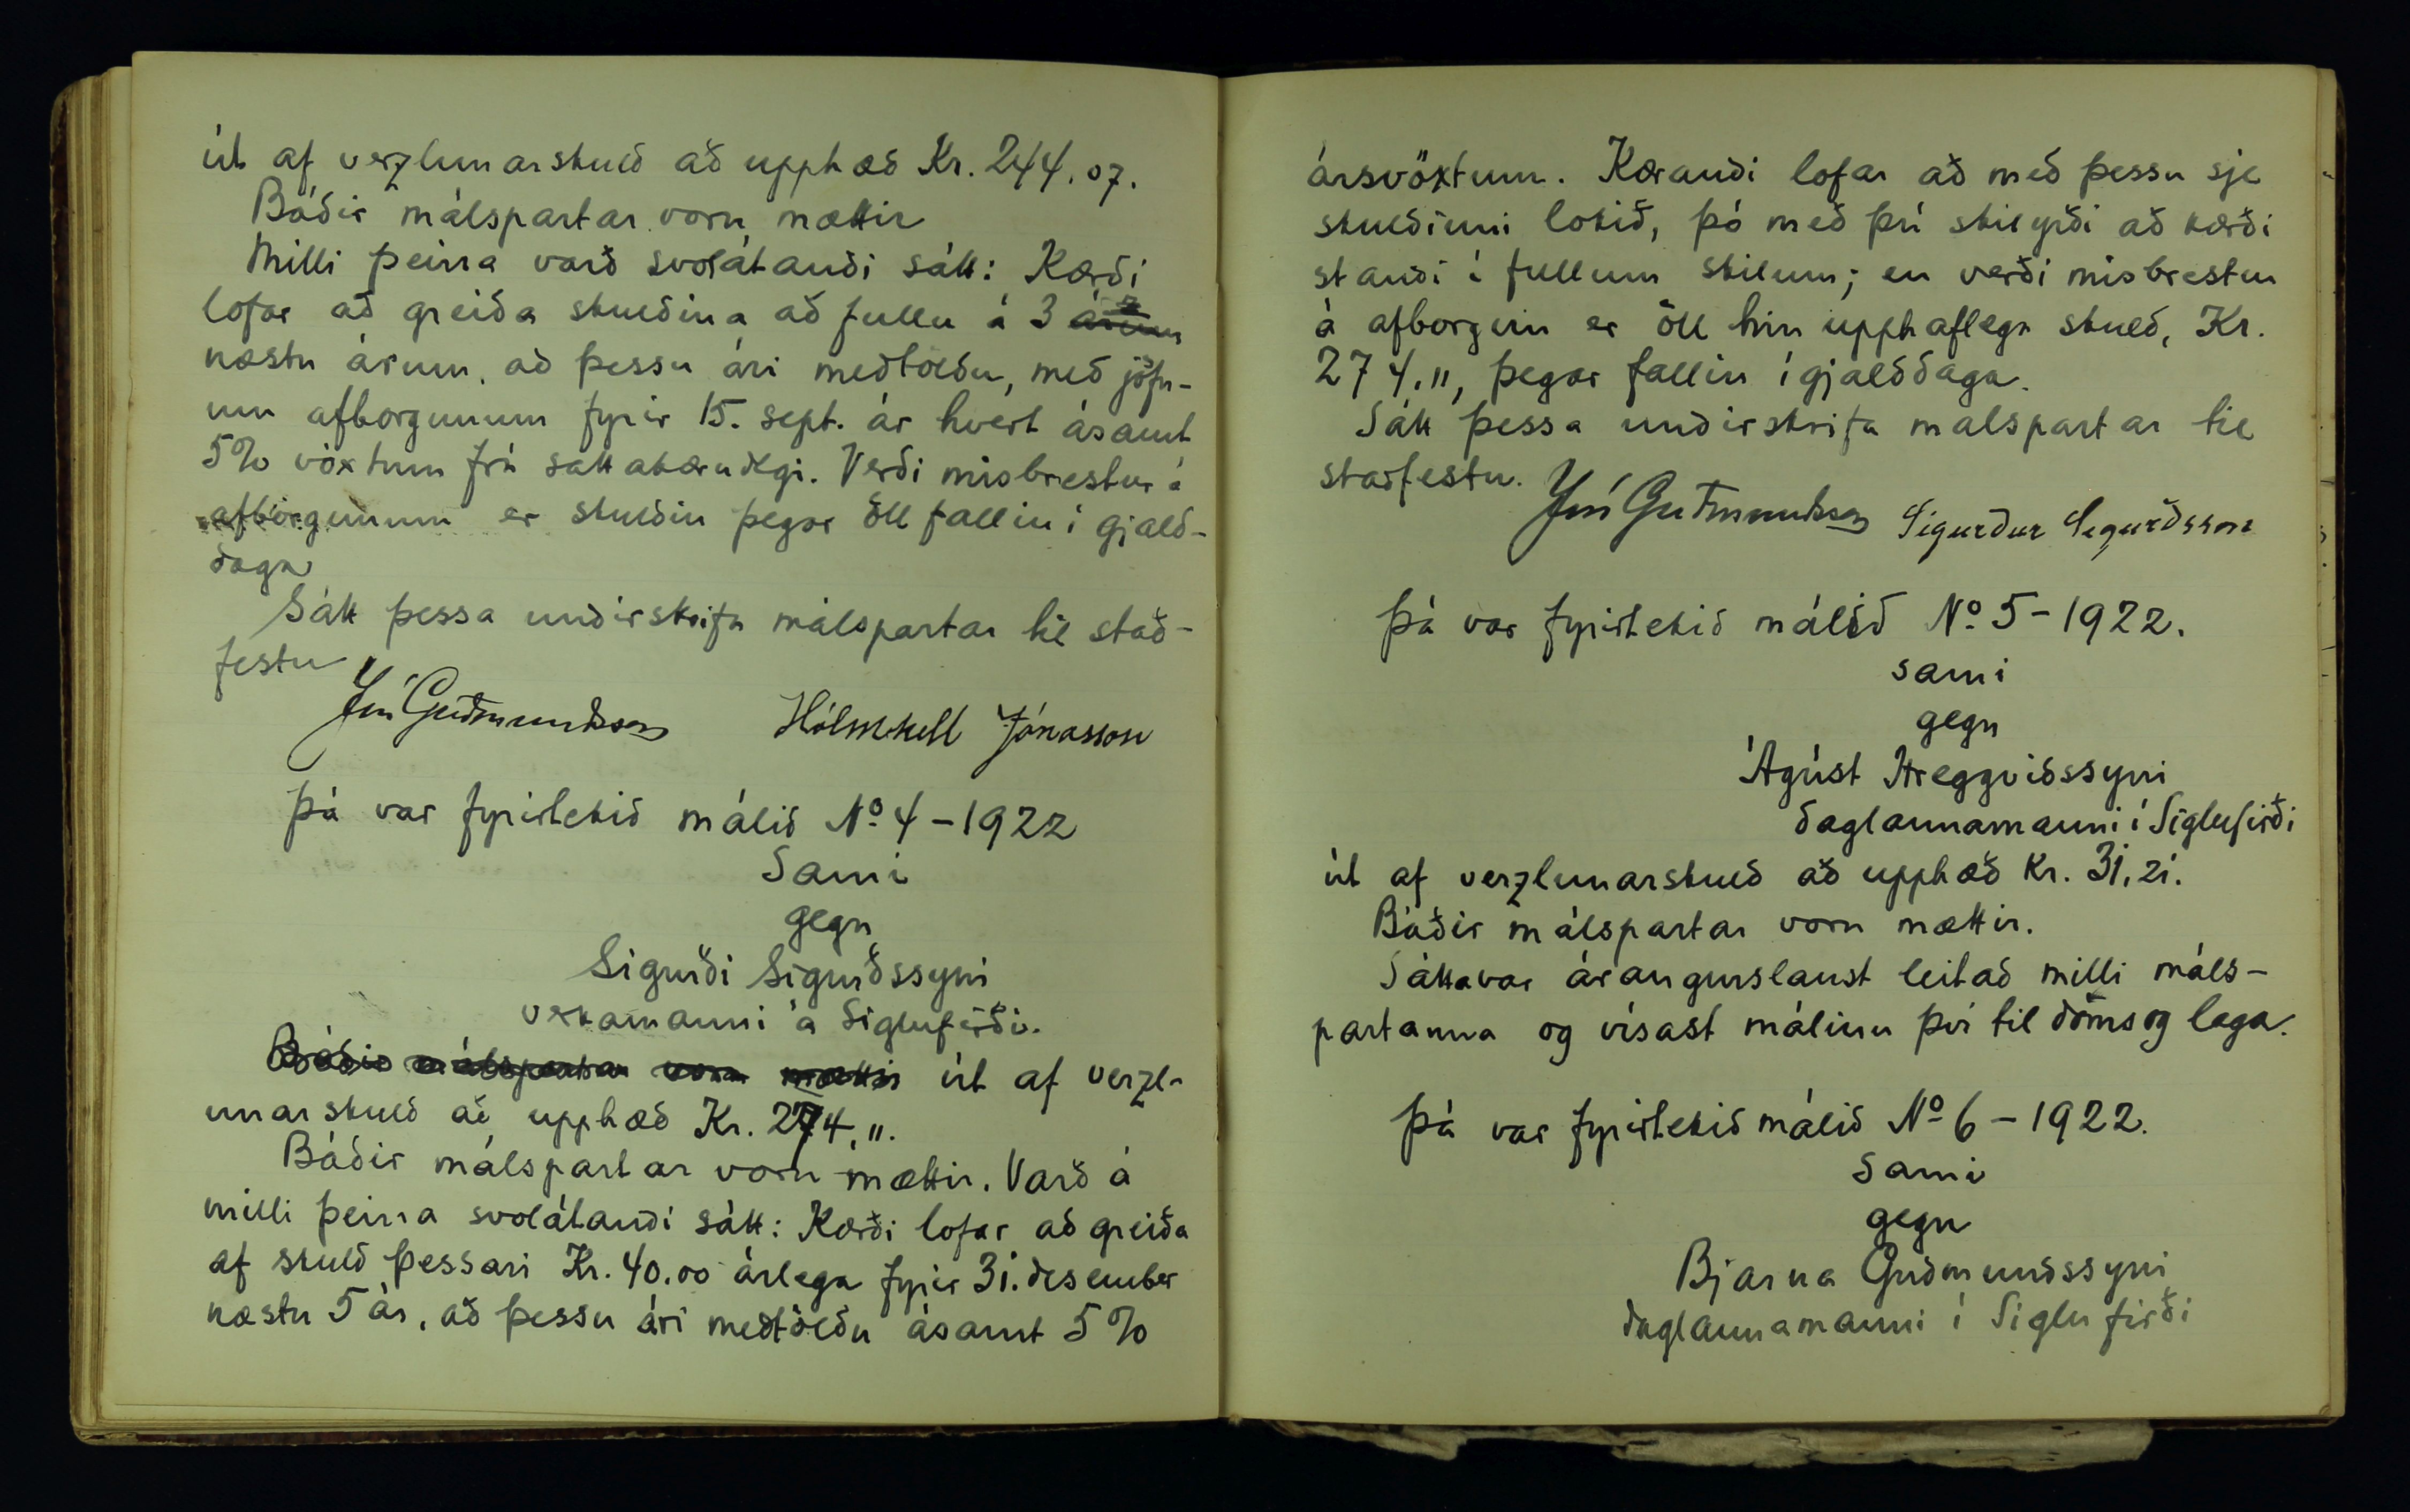 út af verzlunarskuld að upphæð Kr. 244.07.
Báðir málspartar voru mættir
Milli þeirra varð svolátandi sátt: Kærði
lofar að greiða skuldina að fullu á 3 árum
næstu árum, að þessu ári meðtöldu, með jöfn-
um afborgunum fyrir 15. sept. ár hvert ásamt
5% vöxtum frá sáttakærudegi. Verði misbrestur á
afborgunum er skuldin þegar öll fallin í gjald-
daga
Sátt þessa undirskrifa málspartar til stað-
festu
Jón Guðmundsson Hólmkell Jónasson
Þá var fyrirtekið málið No 4 - 1922
Sami
gegn
Sigurði Sigurðssyni
verkamanni á Siglufirði.
Báðir málspartar voru mættir út af verzl-
unarskuld að upphæð Kr. 274,".
Báðir málspartar voru mættir. Varð á
milli þeirra svolátandi sátt: Kærði lofar að greiða
af skuld þessari Kr. 40.00 árlega fyrir 31. desember
næstu 5 ár, að þessu ári meðtöldu ásamt 5%
ársvöxtum. Kærandi lofar að með þessu sje
skuldinni lokið, þó með því skilyrði að kærði
standi í fullum skilum; en verði misbrestur
á afborgun er öll hin upphaflega skuld, Kr.
274.", þegar fallin í gjalddaga.
Sátt þessa undirskrifa malspartar til
staðfestu.
Jón Guðmundsson Sigurður Sigurðsson
Þá var fyrirtekið málið No 5 - 1922.
sami
gegn
Ágúst Hreggviðssyni
daglaunamanni í Siglufirði
út af verzlunarskuld að upphæð Kr. 31.21.
Báðir málspartar voru mættir.
Sátta var árangurslaust leitað milli máls-
partanna og vísast málinu því til dóms og laga.
Þá var fyrirtekið málið No 6 - 1922.
Sami
gegn
Bjarna Guðmundssyni
daglaunamanni í Siglufirði